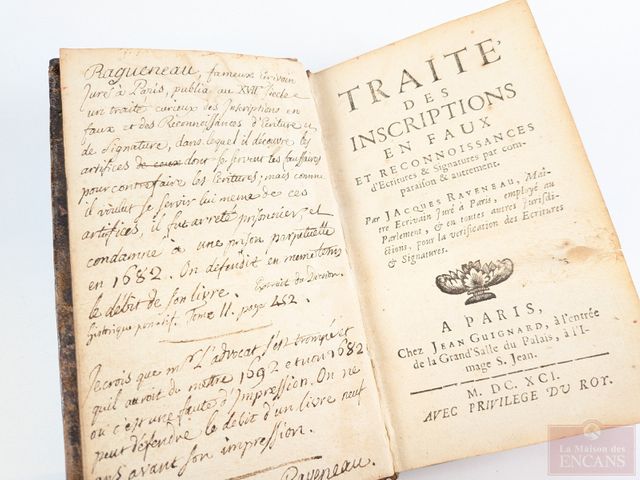 Ragueneau, fameux Ecrivain
Juré à Paris, publia au XVII Siecle
un traité curieux des Inscriptions en
faux et des Réconnoissances d'Ecriture et
de Signature, dans lequel il découvre les
artifices de ceux dont se servent les faussaires
pour contrefaire les Ecritures; mais comme
il voulut se servir lui meme de ces
artifices, il fut arreté prisonnier, et
condamné à une prison perpetuelle
en 1682. On défendit en meme tems
le débit de son livre. Extrait du Diction.
historique portatif. Tome II. page 452.
Je crois que mr L'advocat s'est trompé et
qu'il auroit dû mettre 1692 et non 1682
ou c'est une faute d'Impression. On ne
peut défendre le débit d'un livre neuf
ans avant son impression.
Raveneau.
TRAITÉ
DES
INSCRIPTIONS
EN FAUX
ET RECONNOISSANCES
d'Ecritures & Signatures par com-
paraison & autrement.
Par JACQUES RAVENEAU, Maî-
tre Ecrivain Juré à Paris, employé au
Parlement, & en toutes autres Jurisdi-
ctions, pour la verification des Ecritures
& Signatures.
A PARIS,
Chez JEAN GUIGNARD, à l'entrée
de la Grand'Salle du Palais, à l'I-
mage S. Jean.
M. DC. XCI.
AVEC PRIVILEGE DU ROY.
La Maison des
ENCANS